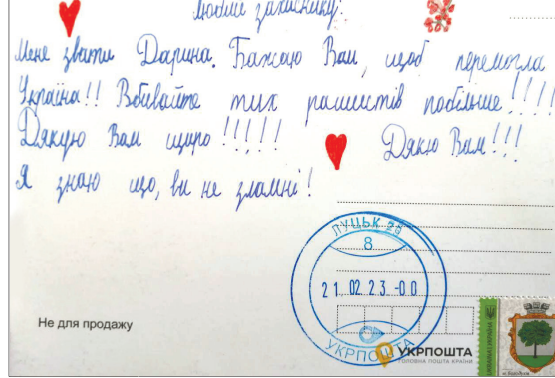 Любий захиснику!
Мене звати Дарина. Бажаю Вам, щоб перемогла
Україна!! Вбивайте тих рашистів побільше!!!!
Дякую Вам щиро!!!!! Дякю Вам!!!
Я знаю що, ви не зламні!
ЛУЦЬК 25
8
21.02.23-00
УКРПОШТА
Не для продажу
УКРПОШТА
ГОЛОВНА ПОШТА КРАЇНИ